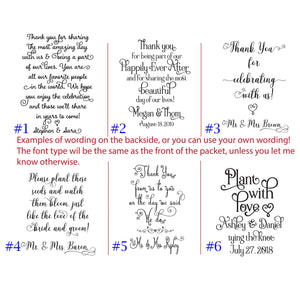 Thank you for sharing
the most amazing day
with us & being a part of
our lives. You are
all our favorite people
in the world. We hope
you enjoy the celebration
and those we'll share
in years to come!
Stephen & Sara
#1
Thank you
for being part of our
Happily Ever After
and for sharing the most
beautiful
day of our lives!
Megan & Thom
August 18, 2019
#2
Thank You
for
celebrating
with us!
Mr. & Mrs. Brown
#3
Examples of wording on the backside, or you can use your own wording!
The font type will be the same as the front of the packet, unless you let me
know otherwise.
Please plant these
seeds and watch
them bloom, just
like the love of the
bride and groom!
#4 Mr. & Mrs. Bacon
Thank You
from us to you
on the day we said
We do
#5
Plant
with
love
Ashley & Daniel
tying the knot
July 27, 2018
#6